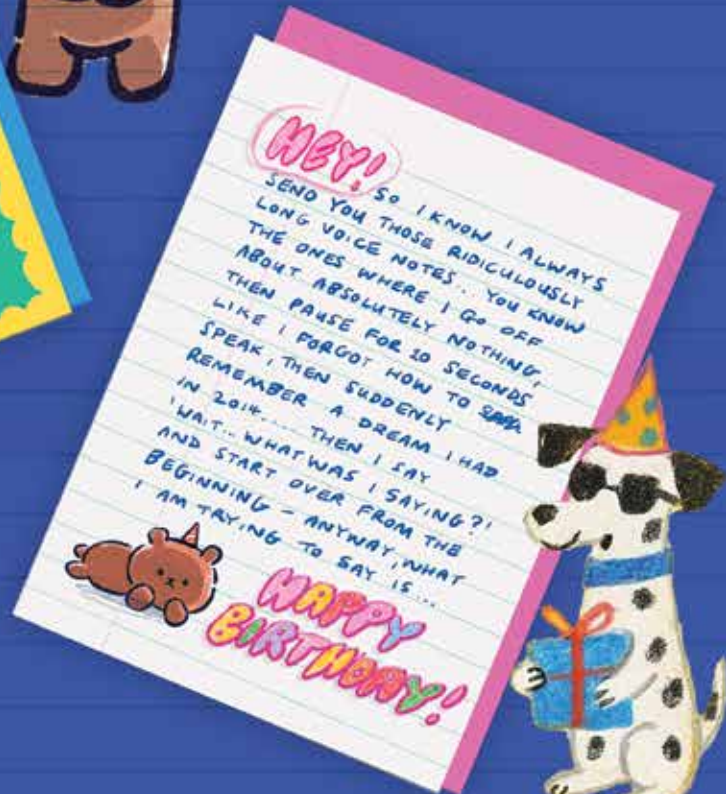 HEY! SO I KNOW I ALWAYS
SEND YOU THOSE RIDICULOUSLY
LONG VOICE NOTES.. YOU KNOW
THE ONES WHERE I GO OFF
ABOUT ABSOLUTELY NOTHING,
THEN PAUSE FOR 20 SECONDS
LIKE I FORGOT HOW TO
SPEAK, THEN SUDDENLY
REMEMBER A DREAM I HAD
IN 2014.... THEN I SAY
'WAIT.. WHAT WAS I SAYING?!'
AND START OVER FROM THE
BEGINNING - ANYWAY, WHAT
I AM TRYING TO SAY IS...
HAPPY
BIRTHDAY!